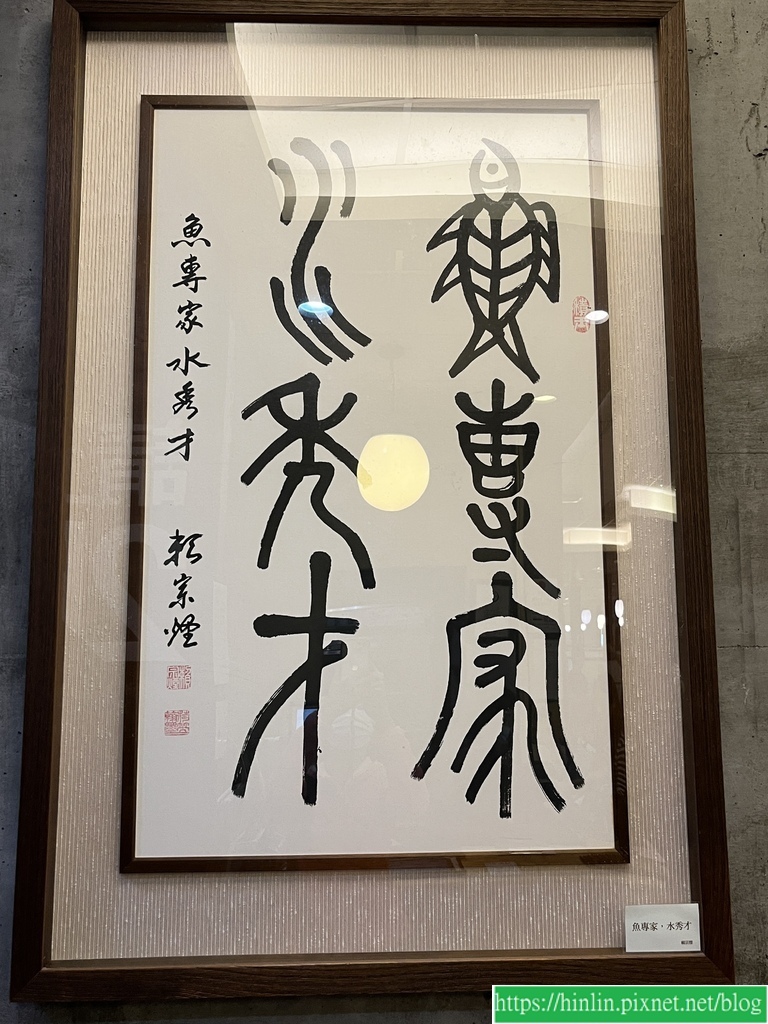 魚專家
水秀才
魚專家水秀才
賴宗煙
魚專家,水秀才
https://hinlin.pixnet.net/blog